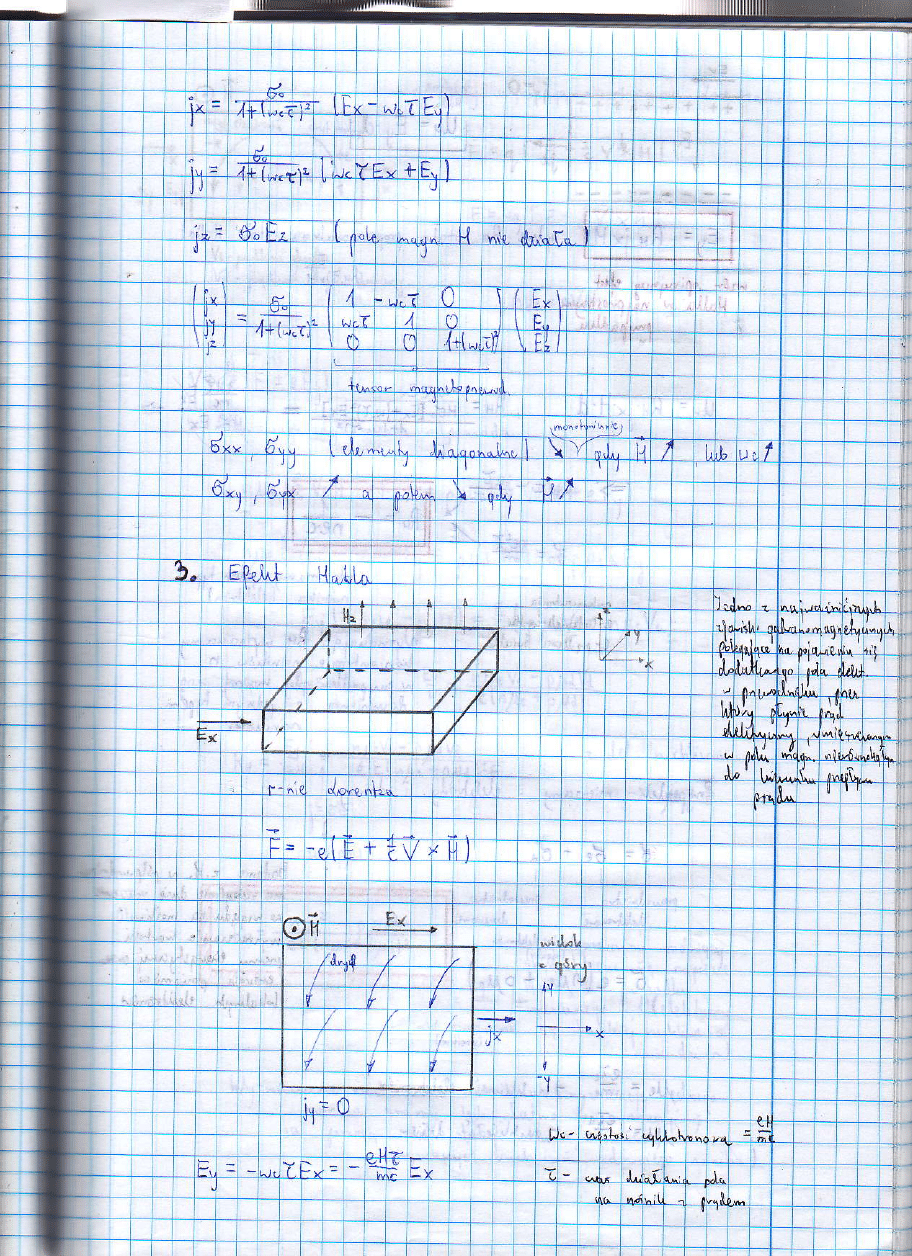 jx = σ₀/(1+(ωcτ)²) (Ex − ωcτEy)
jy = σ₀/(1+(ωcτ)²) (ωcτEx + Ey)
jz = σ₀Ez (pole magn. H nie działa)
(jx jy jz) = σ₀/(1+(ωcτ)²) (1 −ωcτ 0
ωcτ 1 0
0 0 1+(ωcτ)²) (Ex Ey Ez)
tensor magnetoprzewod.
(monotonicznie)
σxx, σyy (elementy diagonalne) ↘ gdy H⃗ ↗, lub ωc↑
σxy, σyx ↗ a potem ↘ gdy H⃗ ↗
3. Efekt Halla
Hz
z
y
x
Ex
Jedno z najważniejszych
zjawisk galvanomagnetycznych
polegające na pojawieniu się
dodatkowego pola elekt.
w przewodniku, przez
który płynie prąd
elektryczny, umieszczonym
w polu magn. nierównoległym
do kierunku przepływu
prądu
r-nie Lorentza
F⃗ = −e(E⃗ + 1/c V⃗ × H⃗)
⊙ H⃗ Ex
dryf
jx
widok
z góry
y
x
-y
jy = 0
ωc - częstość cyklotronowa = eH/mc
Ey = −ωcτEx = − eHτ/mc Ex
τ - czas działania pola
na nośnik z prądem